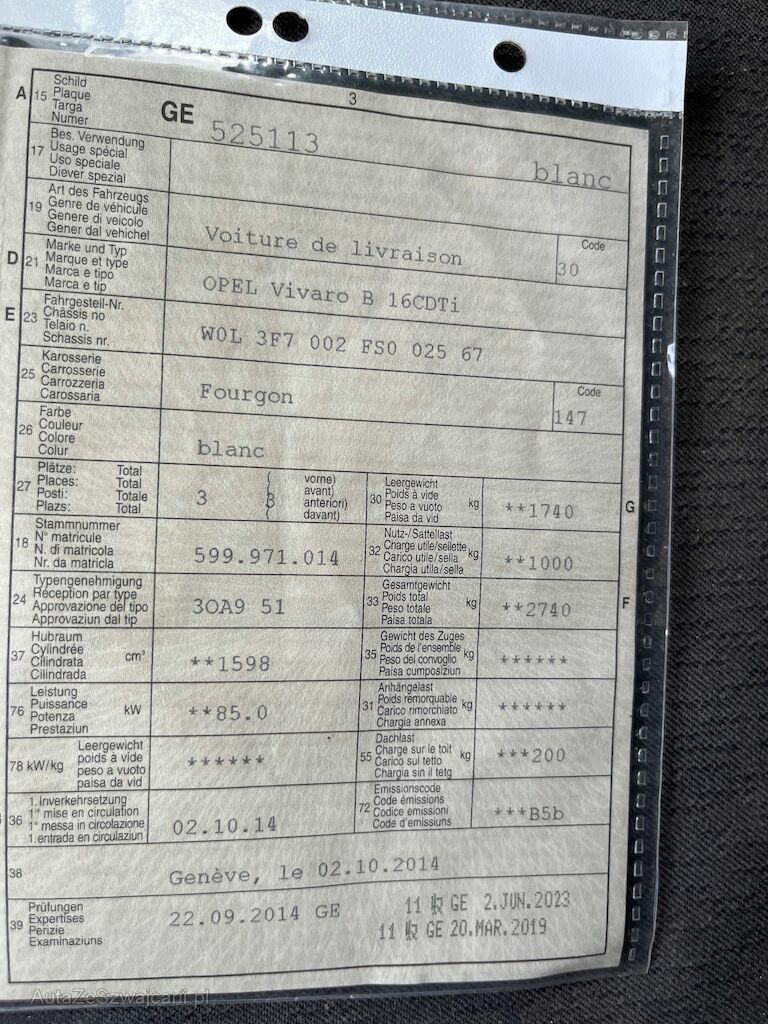 3
A 15 Schild
Plaque
Targa
Numer
GE 525113 blanc
17 Bes. Verwendung
Usage spécial
Uso speciale
Diever spezial
19 Art des Fahrzeugs
Genre de véhicule
Genere di veicolo
Gener dal vehichel
Voiture de livraison
Code
30
D 21 Marke und Typ
Marque et type
Marca e tipo
Marca e tip
OPEL Vivaro B 16CDTi
E 23 Fahrgestell-Nr.
Châssis no
Telaio n.
Schassis nr.
W0L 3F7 002 FS0 025 67
25 Karosserie
Carrosserie
Carrozzeria
Carossaria
Fourgon
Code
147
26 Farbe
Couleur
Colore
Colur
blanc
27 Plätze: Total
Places: Total
Posti: Totale
Plazs: Total
3 3
( vorne)
( avant)
( anteriori)
( davant)
30 Leergewicht
Poids à vide
Peso a vuoto
Paisa da vid
kg **1740 G
18 Stammnummer
N° matricule
N. di matricola
Nr. da matricla
599.971.014
32 Nutz-/Sattellast
Charge utile/sellette
Carico utile/sella
Chargia utila/sella
kg **1000
24 Typengenehmigung
Réception par type
Approvazione del tipo
Approvaziun dal tip
3OA9 51
33 Gesamtgewicht
Poids total
Peso totale
Paisa totala
kg **2740 F
37 Hubraum
Cylindrée
Cilindrata
Cilindrada
cm³ **1598
35 Gewicht des Zuges
Poids de l'ensemble
Peso del convoglio
Paisa cumposiziun
kg ******
76 Leistung
Puissance
Potenza
Prestaziun
kW **85.0
31 Anhängelast
Poids remorquable
Carico rimorchiato
Chargia annexa
kg ******
78 kW/kg Leergewicht
poids à vide
peso a vuoto
paisa da vid
******
55 Dachlast
Charge sur le toit
Carico sul tetto
Chargia sin il tetg
kg ***200
36 1. Inverkehrsetzung
1re mise en circulation
1a messa in circolazione
1. entrada en circulaziun
02.10.14
72 Emissionscode
Code émissions
Codice emissioni
Code d'emissiuns
***B5b
38 Genève, le 02.10.2014
39 Prüfungen
Expertises
Perizie
Examinaziuns
22.09.2014 GE
11 GE 2.JUN.2023
11 GE 20.MAR.2019
AutaZeSzwajcarii.pl